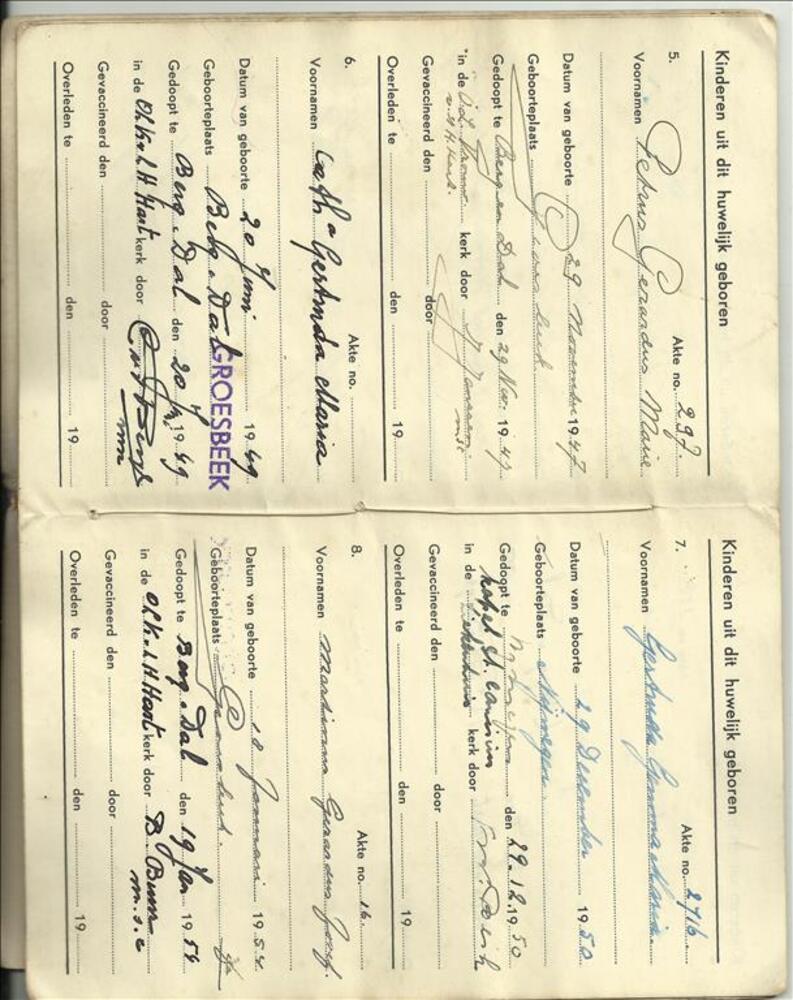 Kinderen uit dit huwelijk geboren
5. Akte no. 297.
Voornamen Petrus Gerardus Marie
Datum van geboorte 29 November 1947
Geboorteplaats
Gedoopt te Berg en Dal den 29 Nov. 1947
in de kerk door J. Janssen msc
Gevaccineerd den door
Overleden te den 19
6. Akte no.
Voornamen Cath a Gertruda Maria
Datum van geboorte 20 Juni 1949
Geboorteplaats Berg e Dal GROESBEEK
Gedoopt te Berg e Dal den 20 1949
in de Hart kerk door
Gevaccineerd den door
Overleden te den 19
Kinderen uit dit huwelijk geboren
7. Akte no. 2716
Voornamen Gertruda Gemma Maria
Datum van geboorte 29 December 1950
Geboorteplaats Nijmegen
Gedoopt te Nijmegen den 29.12.1950
kapel St. Canisius
in de ziekenhuis kerk door
Gevaccineerd den door
Overleden te den 19
8. Akte no. 16.
Voornamen Martinus Gerardus Jozef.
Datum van geboorte 18 Januari 1954.
Geboorteplaats
Gedoopt te Berg e Dal den 19 Jan 1954
in de Hart kerk door B. m.s.c
Gevaccineerd den door
Overleden te den 19